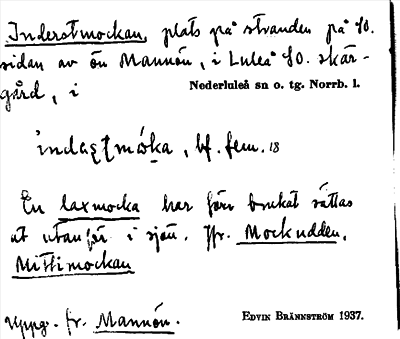 Inderstmockan, plats på stranden på SO.
sidan av ön Mannön, i Luleå SO. skär-
gård, i Nederluleå sn o. tg. Norrb. l.
bf. fem. 18
En laxmocka har förr brukat sättas
ut utanför i sjön. Jfr. Mockudden,
Mittimockan
Uppg. fr. Mannön. EDVIN BRÄNNSTRÖM 1937.